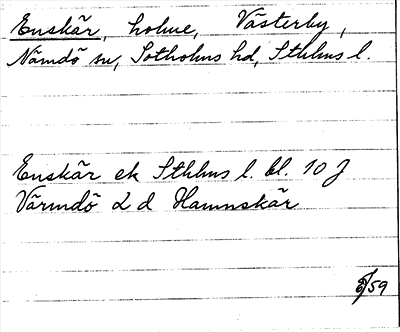 Enskär, holme, Västerby,
Nämdö sn, Sotholms hd, Sthlms l.
Enskär ek Sthlms l. bl. 10 J
Värmdö 2 d Hamnskär
59